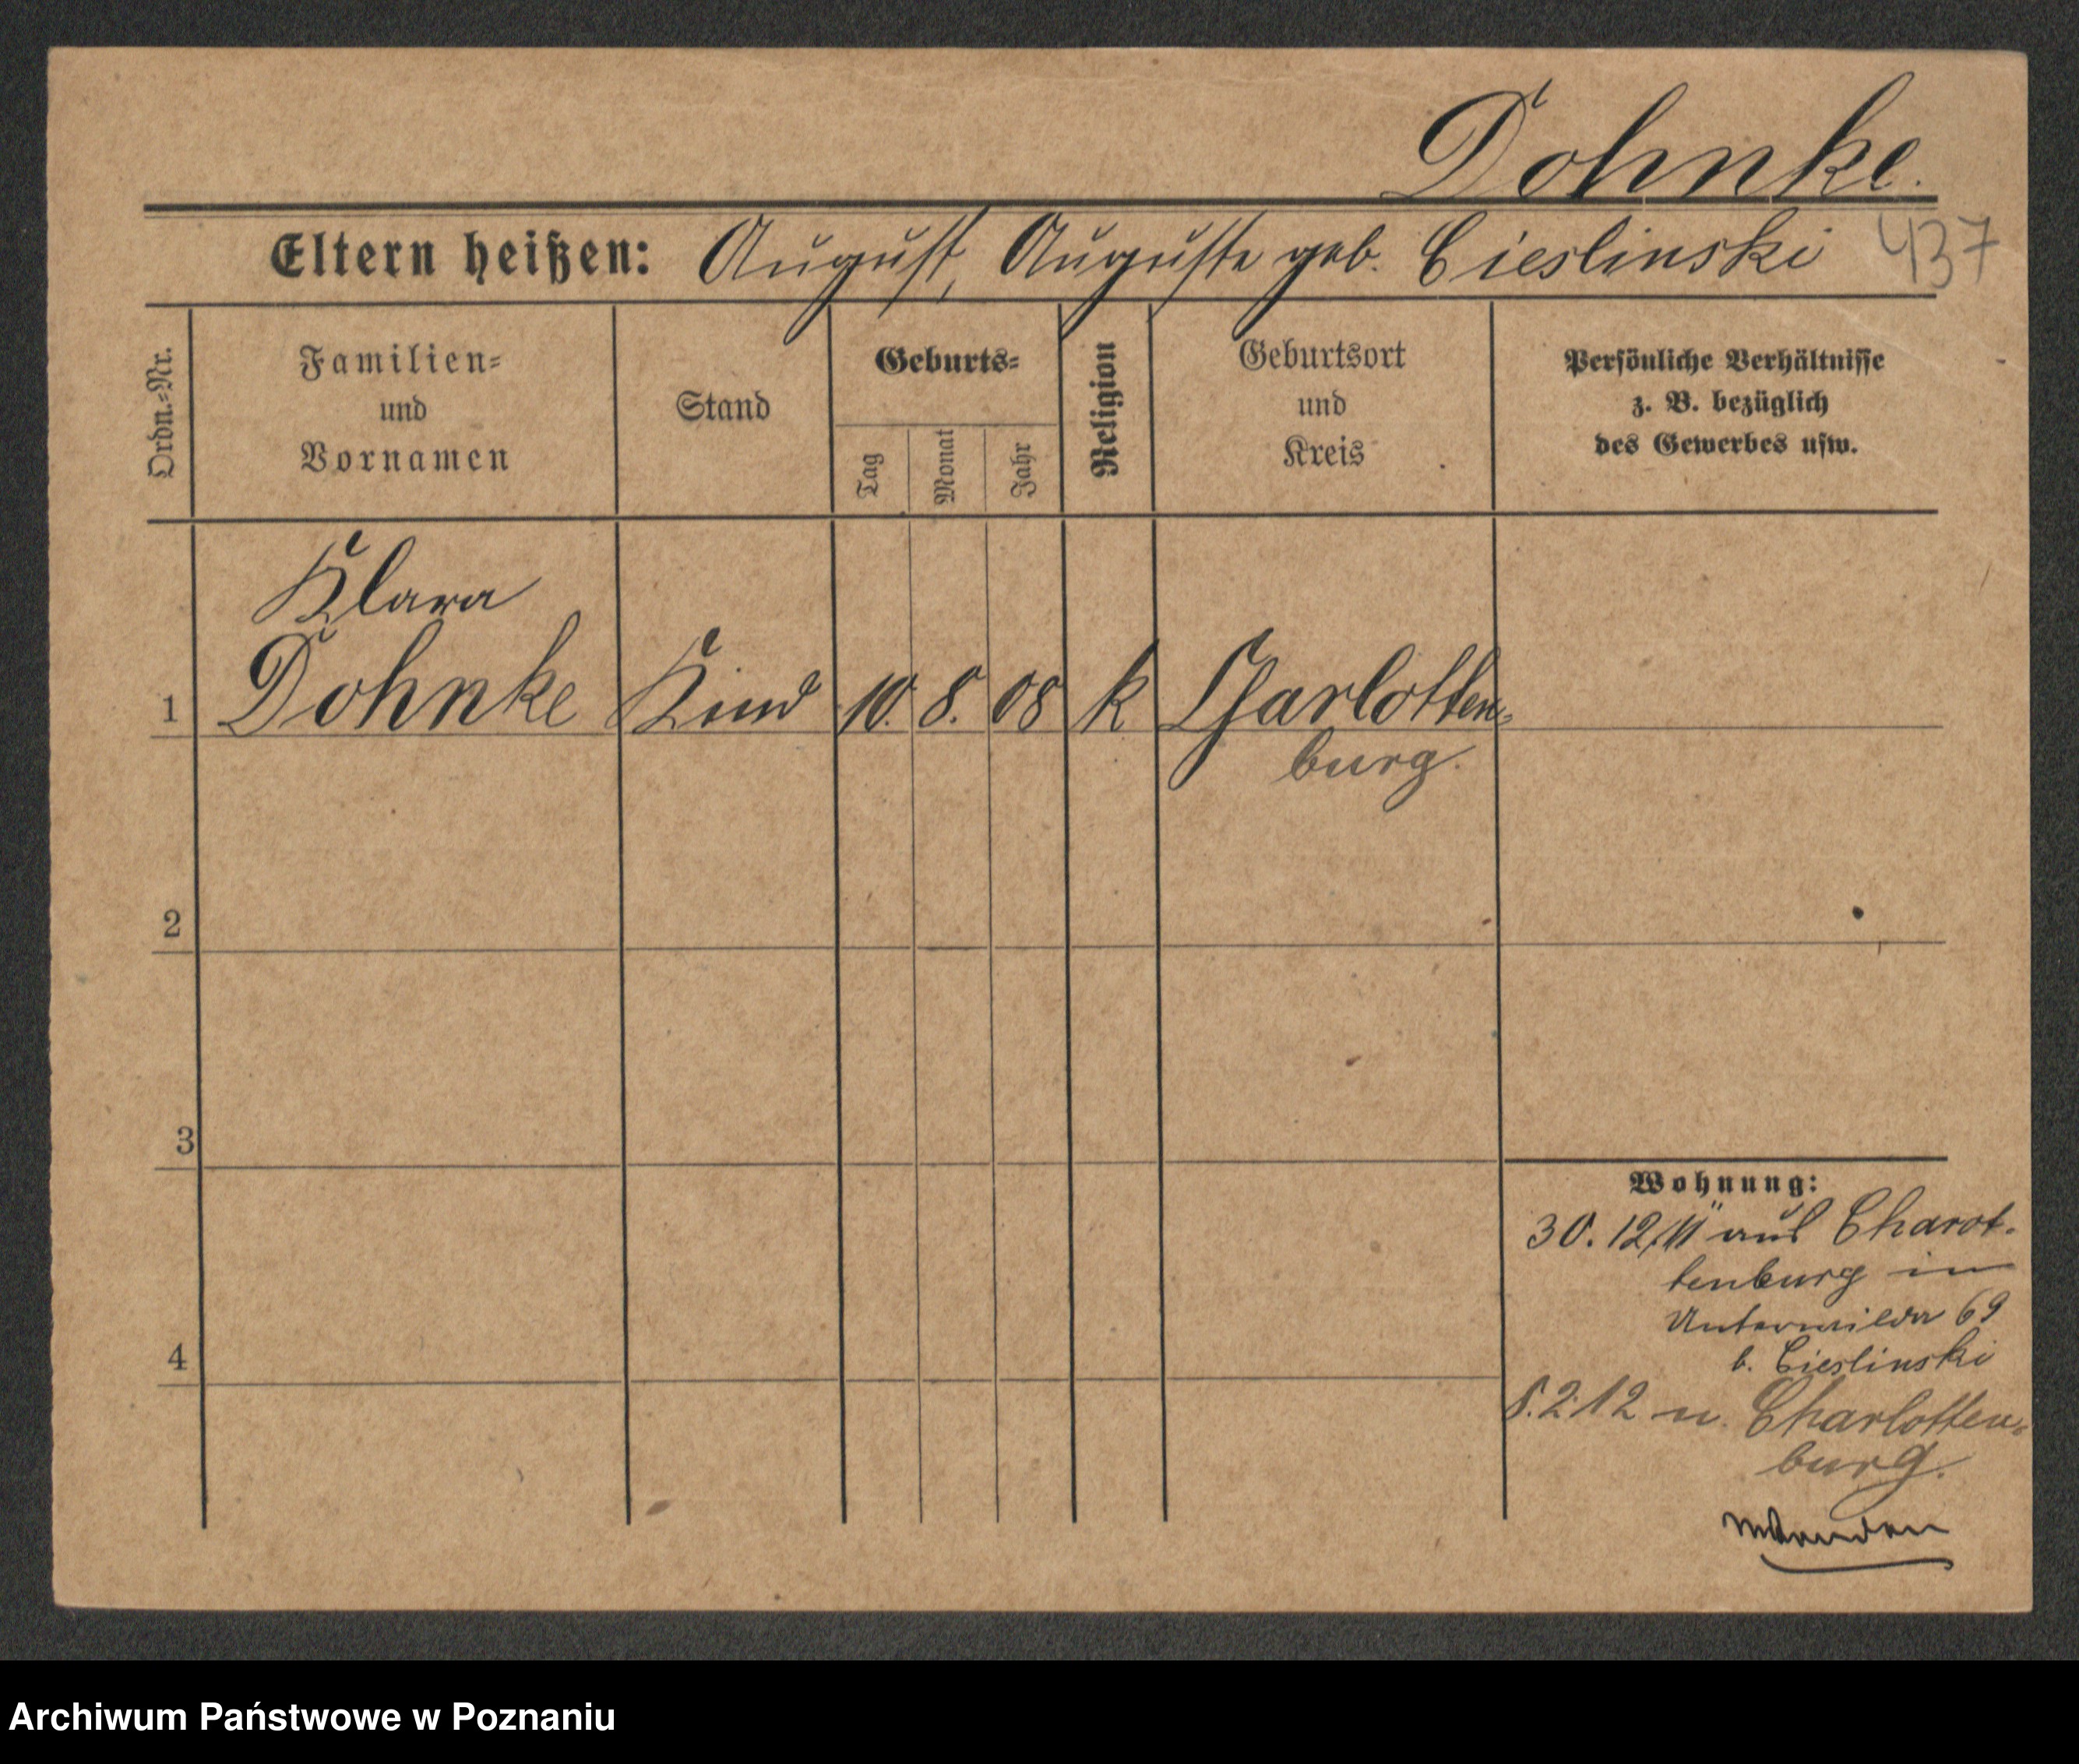 Dohnke.
Eltern heißen: August, Auguste geb. Cieslinski 437
Ordn.-Nr.
Familien-
und
Vornamen
Stand
Geburts-
Tag
Monat
Jahr
Religion
Geburtsort
und
Kreis
Persönliche Verhältnisse
z. B. bezüglich
des Gewerbes usw.
Klara
1 Dohnke Kind 10. 8. 08 k Charlotten-
burg.
2
3
4
Wohnung:
30. 12/11 aus Charot-
tenburg in
Unterwilda 69
b. Cieslinski
8.2.12 n. Charlotten-
burg.
Archiwum Państwowe w Poznaniu